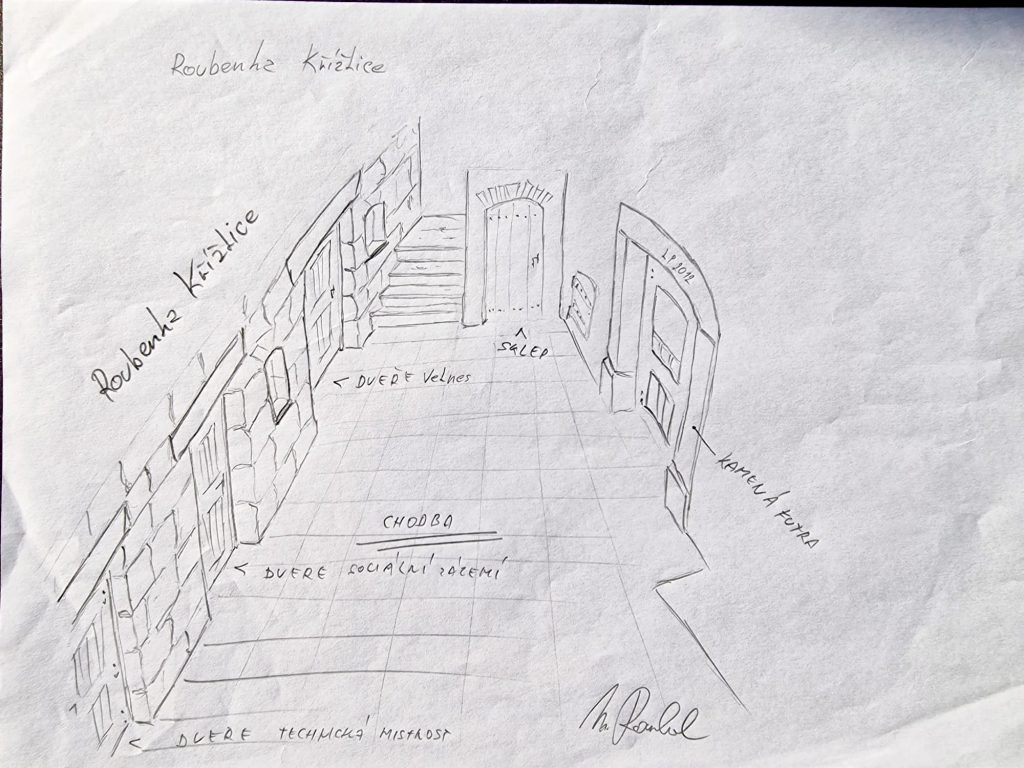 Roubenka Křížlice
Roubenka Křížlice
LP 2012
SKLEP
< DVEŘE Velnes
KAMENÁ FUTRA
CHODBA
< DVEŘE SOCIÁLNÍ ZÁZEMÍ
< DVEŘE TECHNICKÁ MISTNOST